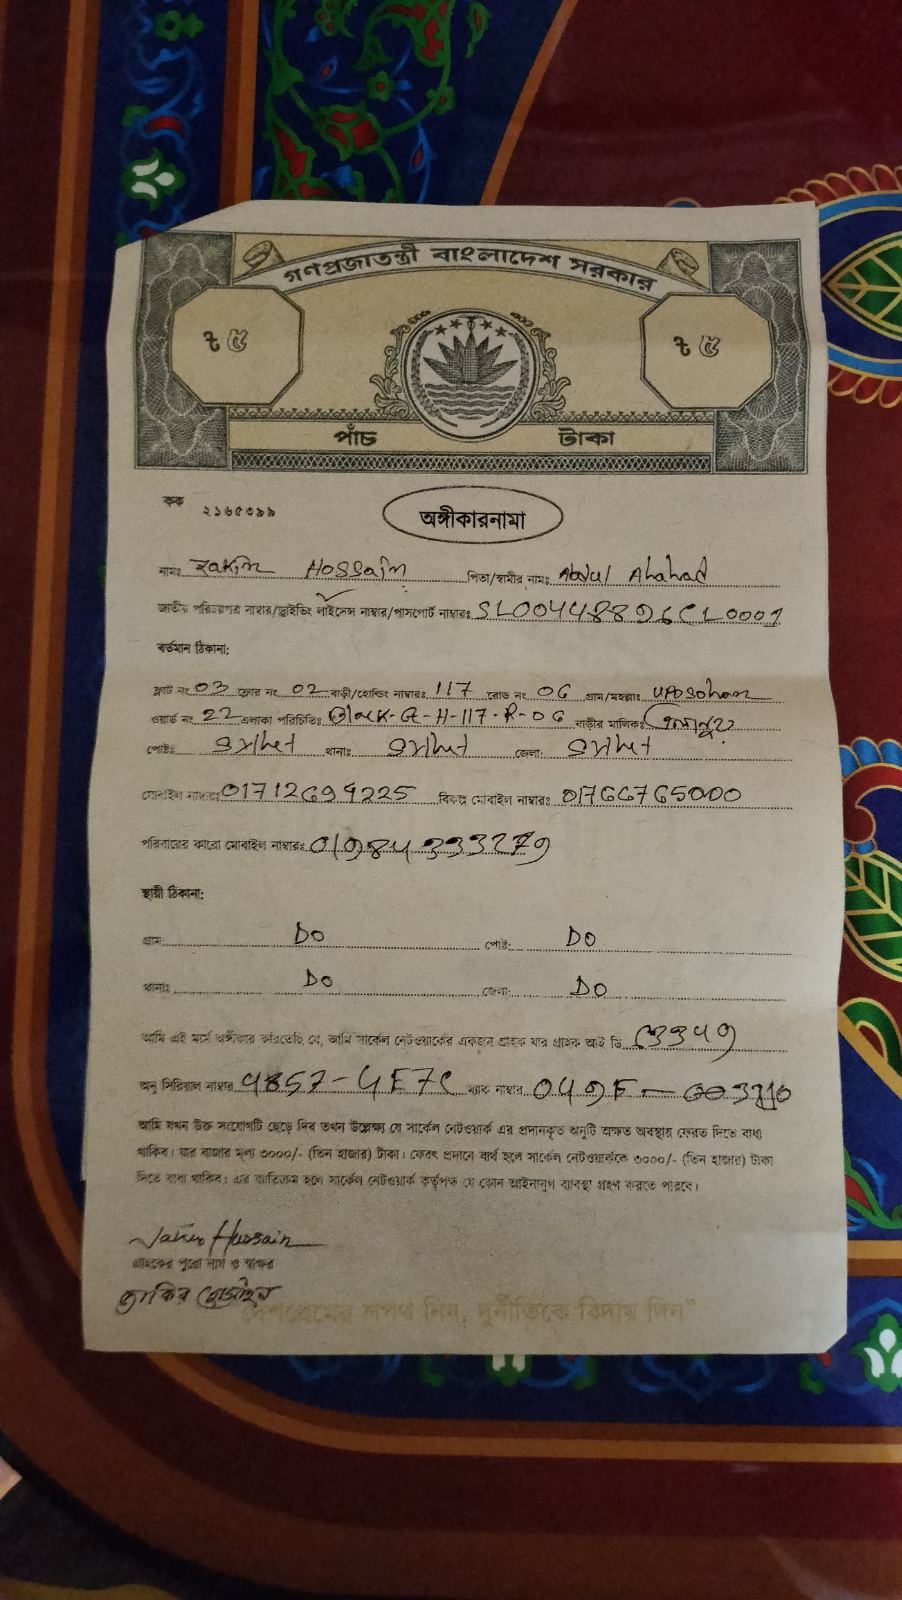 গণপ্রজাতন্ত্রী বাংলাদেশ সরকার
৳ ৫ ৳ ৫
পাঁচ টাকা
কক ২১৬৫৩৯৯
অঙ্গীকারনামা
নামঃ Zakir Hossain পিতা/স্বামীর নামঃ Abdul Ahahad
জাতীয় পরিচয়পত্র নাম্বার/ড্রাইভিং লাইসেন্স নাম্বার/পাসপোর্ট নাম্বারঃ SL00448896CL0001
বর্তমান ঠিকানা:
ফ্লাট নং 03 ফ্লোর নং 02 বাড়ী/হোল্ডিং নাম্বারঃ 117 রোড নং 06 গ্রাম/মহল্লাঃ Uposohor
ওয়ার্ড নং 22 এলাকা পরিচিতিঃ Block-G-H-117-R-06 বাড়ীর মালিকঃ
পোষ্টঃ Sylhet থানাঃ Sylhet জেলা: Sylhet
মোবাইল নাম্বারঃ 01712694225 বিকল্প মোবাইল নাম্বারঃ 01766765000
পরিবারের কারো মোবাইল নাম্বারঃ 01984333279
স্থায়ী ঠিকানা:
গ্রাম: Do পোষ্ট: Do
থানাঃ Do জেলা: Do
আমি এই মর্মে অঙ্গীকার করিতেছি যে, আমি সার্কেল নেটওয়ার্কের একজন গ্রাহক যার গ্রাহক আই ডি C3349
অনু সিরিয়াল নাম্বার 4857-4E7C ম্যাক নাম্বার 049F-
আমি যখন উক্ত সংযোগটি ছেড়ে দিব তখন উল্লেক্ষ্য যে সার্কেল নেটওয়ার্ক এর প্রদানকৃত অনুটি অক্ষত অবস্থায় ফেরত দিতে বাধ্য
থাকিব। যার বাজার মূল্য ৩০০০/- (তিন হাজার) টাকা। ফেরৎ প্রদানে ব্যর্থ হলে সার্কেল নেটওয়ার্ককে ৩০০০/- (তিন হাজার) টাকা
দিতে বাধ্য থাকিব। এর ব্যতিক্রম হলে সার্কেল নেটওয়ার্ক কর্তৃপক্ষ যে কোন আইনানুগ ব্যবস্থা গ্রহণ করতে পারবে।
Jakir Hussain
গ্রাহকের পুরো নাম ও স্বাক্ষর
জাকির হোসাইন
"দেশপ্রেমের শপথ নিন, দুর্নীতিকে বিদায় দিন"